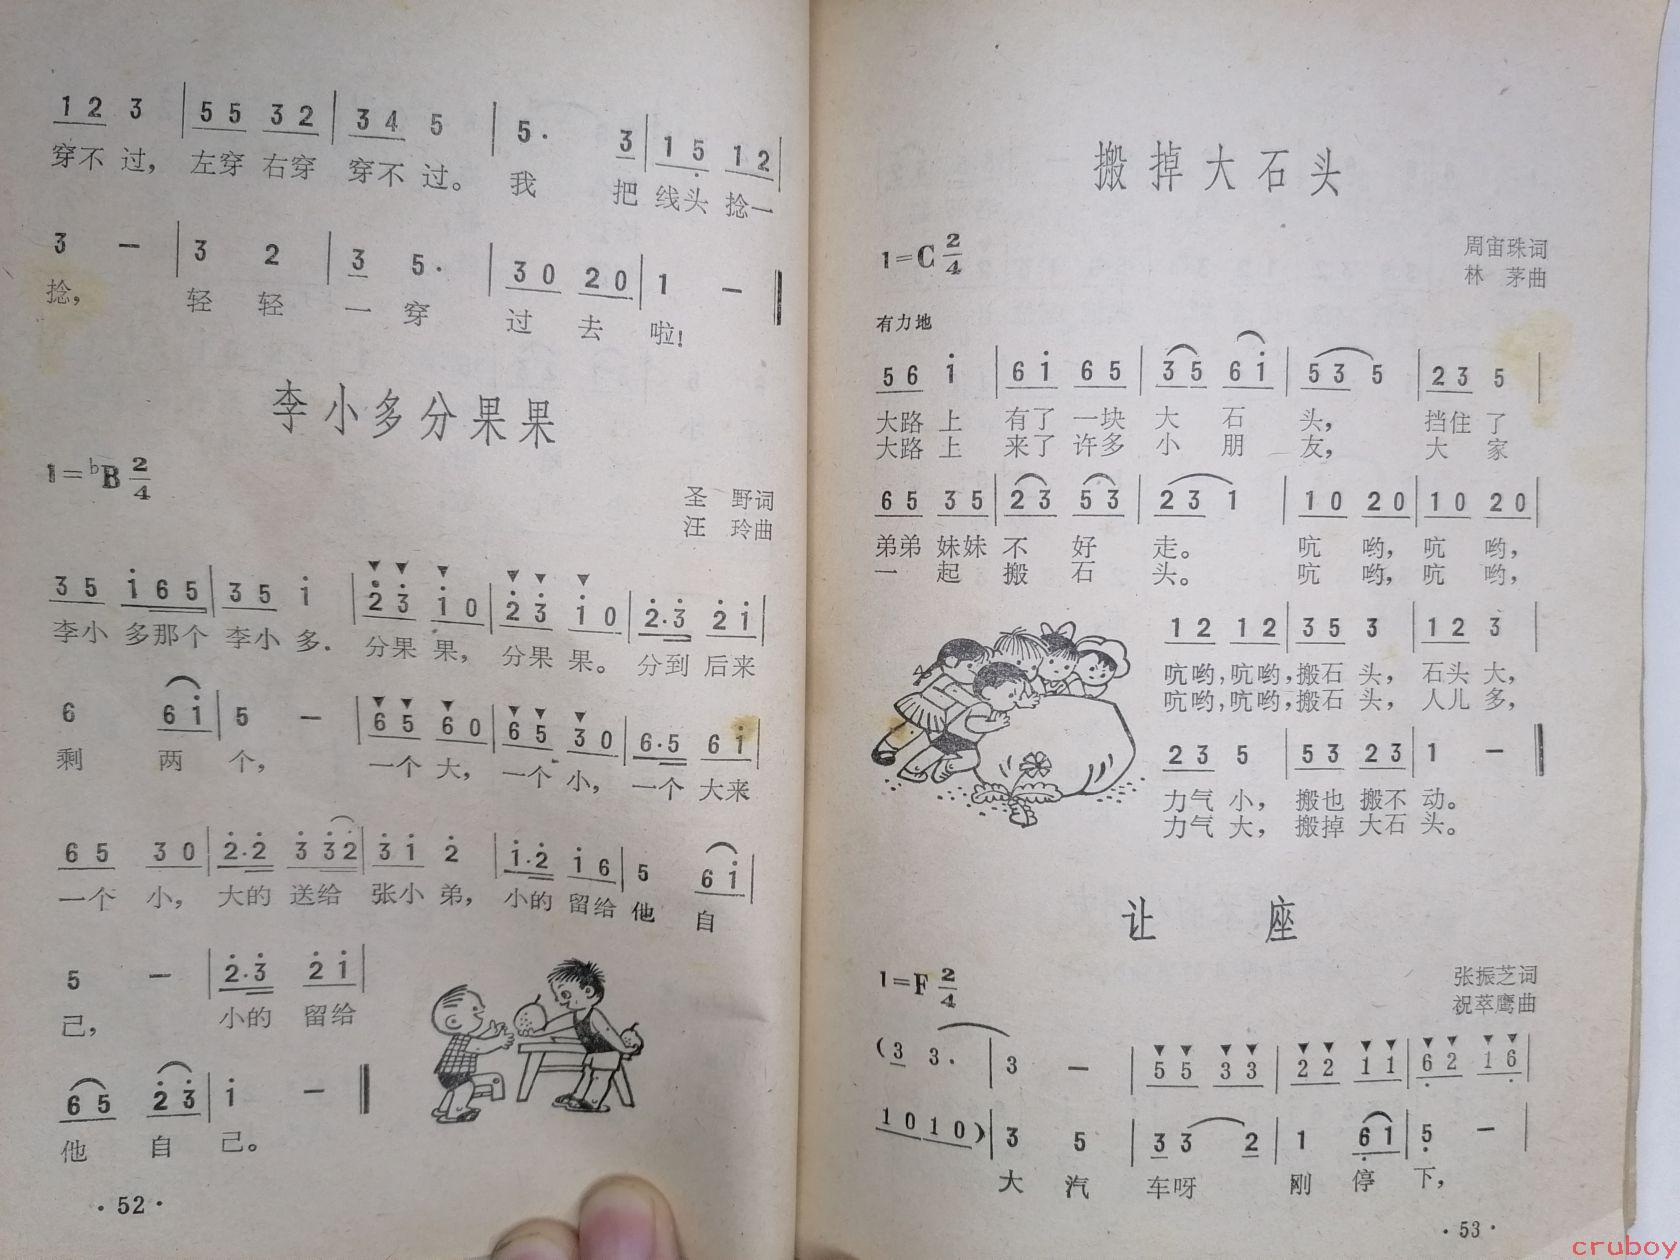 1 2 3 | 5 5 3 2 | 3 4 5 | 5· 3 | 1 5 1 2 |
穿不 过， 左穿 右穿 穿不 过。 我 把 线头 捻一
3 － | 3 2 | 3 5· | 3 0 2 0 | 1 － ‖
捻， 轻 轻 一 穿 过 去 啦！
李小多分果果
1=♭B 2/4
圣 野词
汪 玲曲
3 5 i 6 5 | 3 5 i | 2 3 i 0 | 2 3 i 0 | 2·3 2 i |
李小 多那个 李小 多． 分果 果， 分果 果。 分到 后来
6 6 i | 5 － | 6 5 6 0 | 6 5 3 0 | 6·5 6 i |
剩 两 个， 一个 大， 一个 小， 一个 大来
6 5 3 0 | 2·2 3 3 2 | 3 i 2 | i·2 i 6 | 5 6 i |
一个 小， 大的 送给 张小 弟， 小的 留给 他 自
5 － | 2·3 2 i |
己， 小的 留给
6 5 2 3 | i － ‖
他 自 己。
·52·
搬掉大石头
1=C 2/4
周宙珠词
林 茅曲
有力地
5 6 i | 6 i 6 5 | 3 5 6 i | 5 3 5 | 2 3 5 |
大路 上 有了 一块 大 石 头， 挡住 了
大路 上 来了 许多 小 朋 友， 大 家
6 5 3 5 | 2 3 5 3 | 2 3 1 | 1 0 2 0 | 1 0 2 0 |
弟弟 妹妹 不 好 走。 吭 哟， 吭 哟，
一 起 搬 石 头。 吭 哟， 吭 哟，
1 2 1 2 | 3 5 3 | 1 2 3 |
吭哟，吭哟，搬石 头， 石头 大，
吭哟，吭哟，搬石 头， 人儿 多，
2 3 5 | 5 3 2 3 | 1 － ‖
力气 小， 搬也 搬不 动。
力气 大， 搬掉 大石 头。
让 座
1=F 2/4
张振芝词
祝萃鹰曲
(3 3· | 3 － | 5 5 3 3 | 2 2 1 1 | 6 2 1 6 |
1 0 1 0) | 3 5 | 3 3 2 | 1 6 1 | 5 － |
大 汽 车呀 刚 停 下，
·53·
cruboy